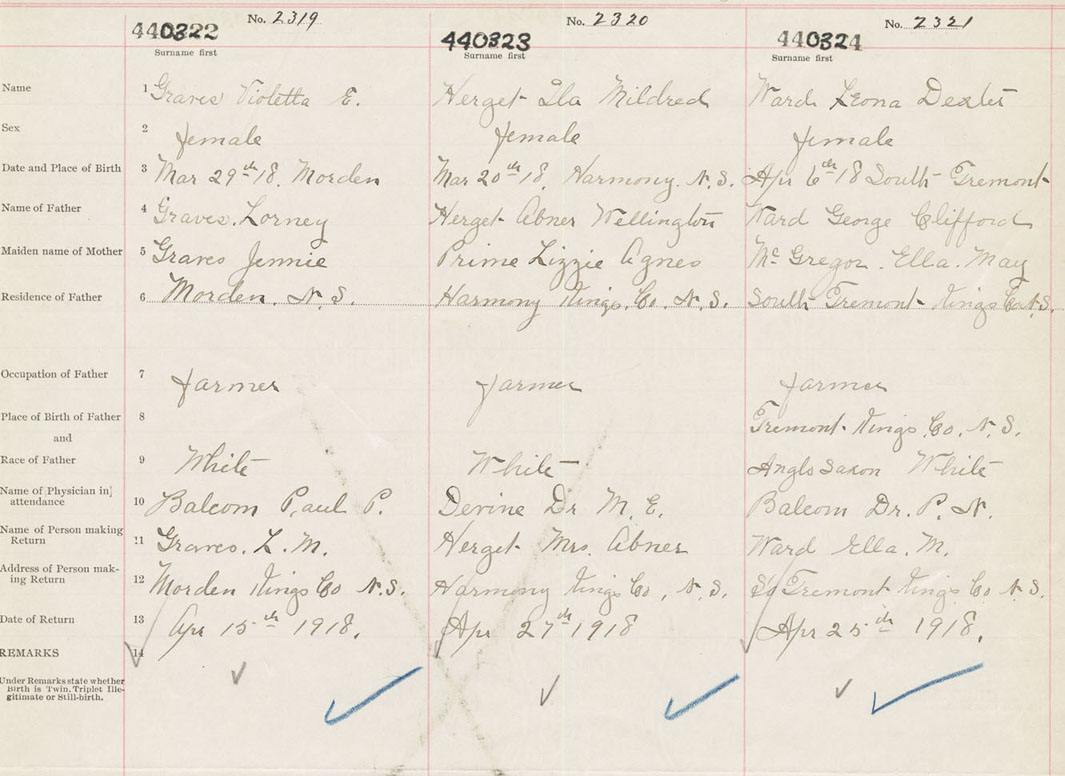 No. 2319 No. 2320 No. 2321
440322 440323 440324
Surname first Surname first Surname first
Name 1 Graves Violetta E. Herget Ila Mildred Ward Leona Dexter
Sex 2 female female female
Date and Place of Birth 3 Mar 29th 18. Morden Mar 20th 18, Harmony. N.S. Apr 6th 18 South Tremont
Name of Father 4 Graves. Lorney Herget Abner Wellington Ward George Clifford
Maiden name of Mother 5 Graves Jennie Prime Lizzie Agnes Mc Gregor. Ella. May
Residence of Father 6 Morden. N.S. Harmony Kings. Co. N.S. South Tremont Kings Co N.S.
Occupation of Father 7 farmer farmer farmer
Place of Birth of Father 8 Tremont Kings. Co. N.S.
and
Race of Father 9 White White Anglo Saxon White
Name of [Physician in]
attendance 10 Balcom Paul P. Devine Dr M. E. Balcom Dr. P. N.
Name of Person making
Return 11 Graves. L. M. Herget Mrs. Abner Ward Ella. M.
Address of Person mak-
ing Return 12 Morden Kings Co N.S. Harmony Kings Co, N.S. So Tremont Kings Co N.S.
Date of Return 13 Apr 15th 1918. Apr 27th 1918 Apr 25th 1918.
REMARKS 14
Under Remarks state whether
Birth is Twin, Triplet Ille-
gitimate or Still-birth.